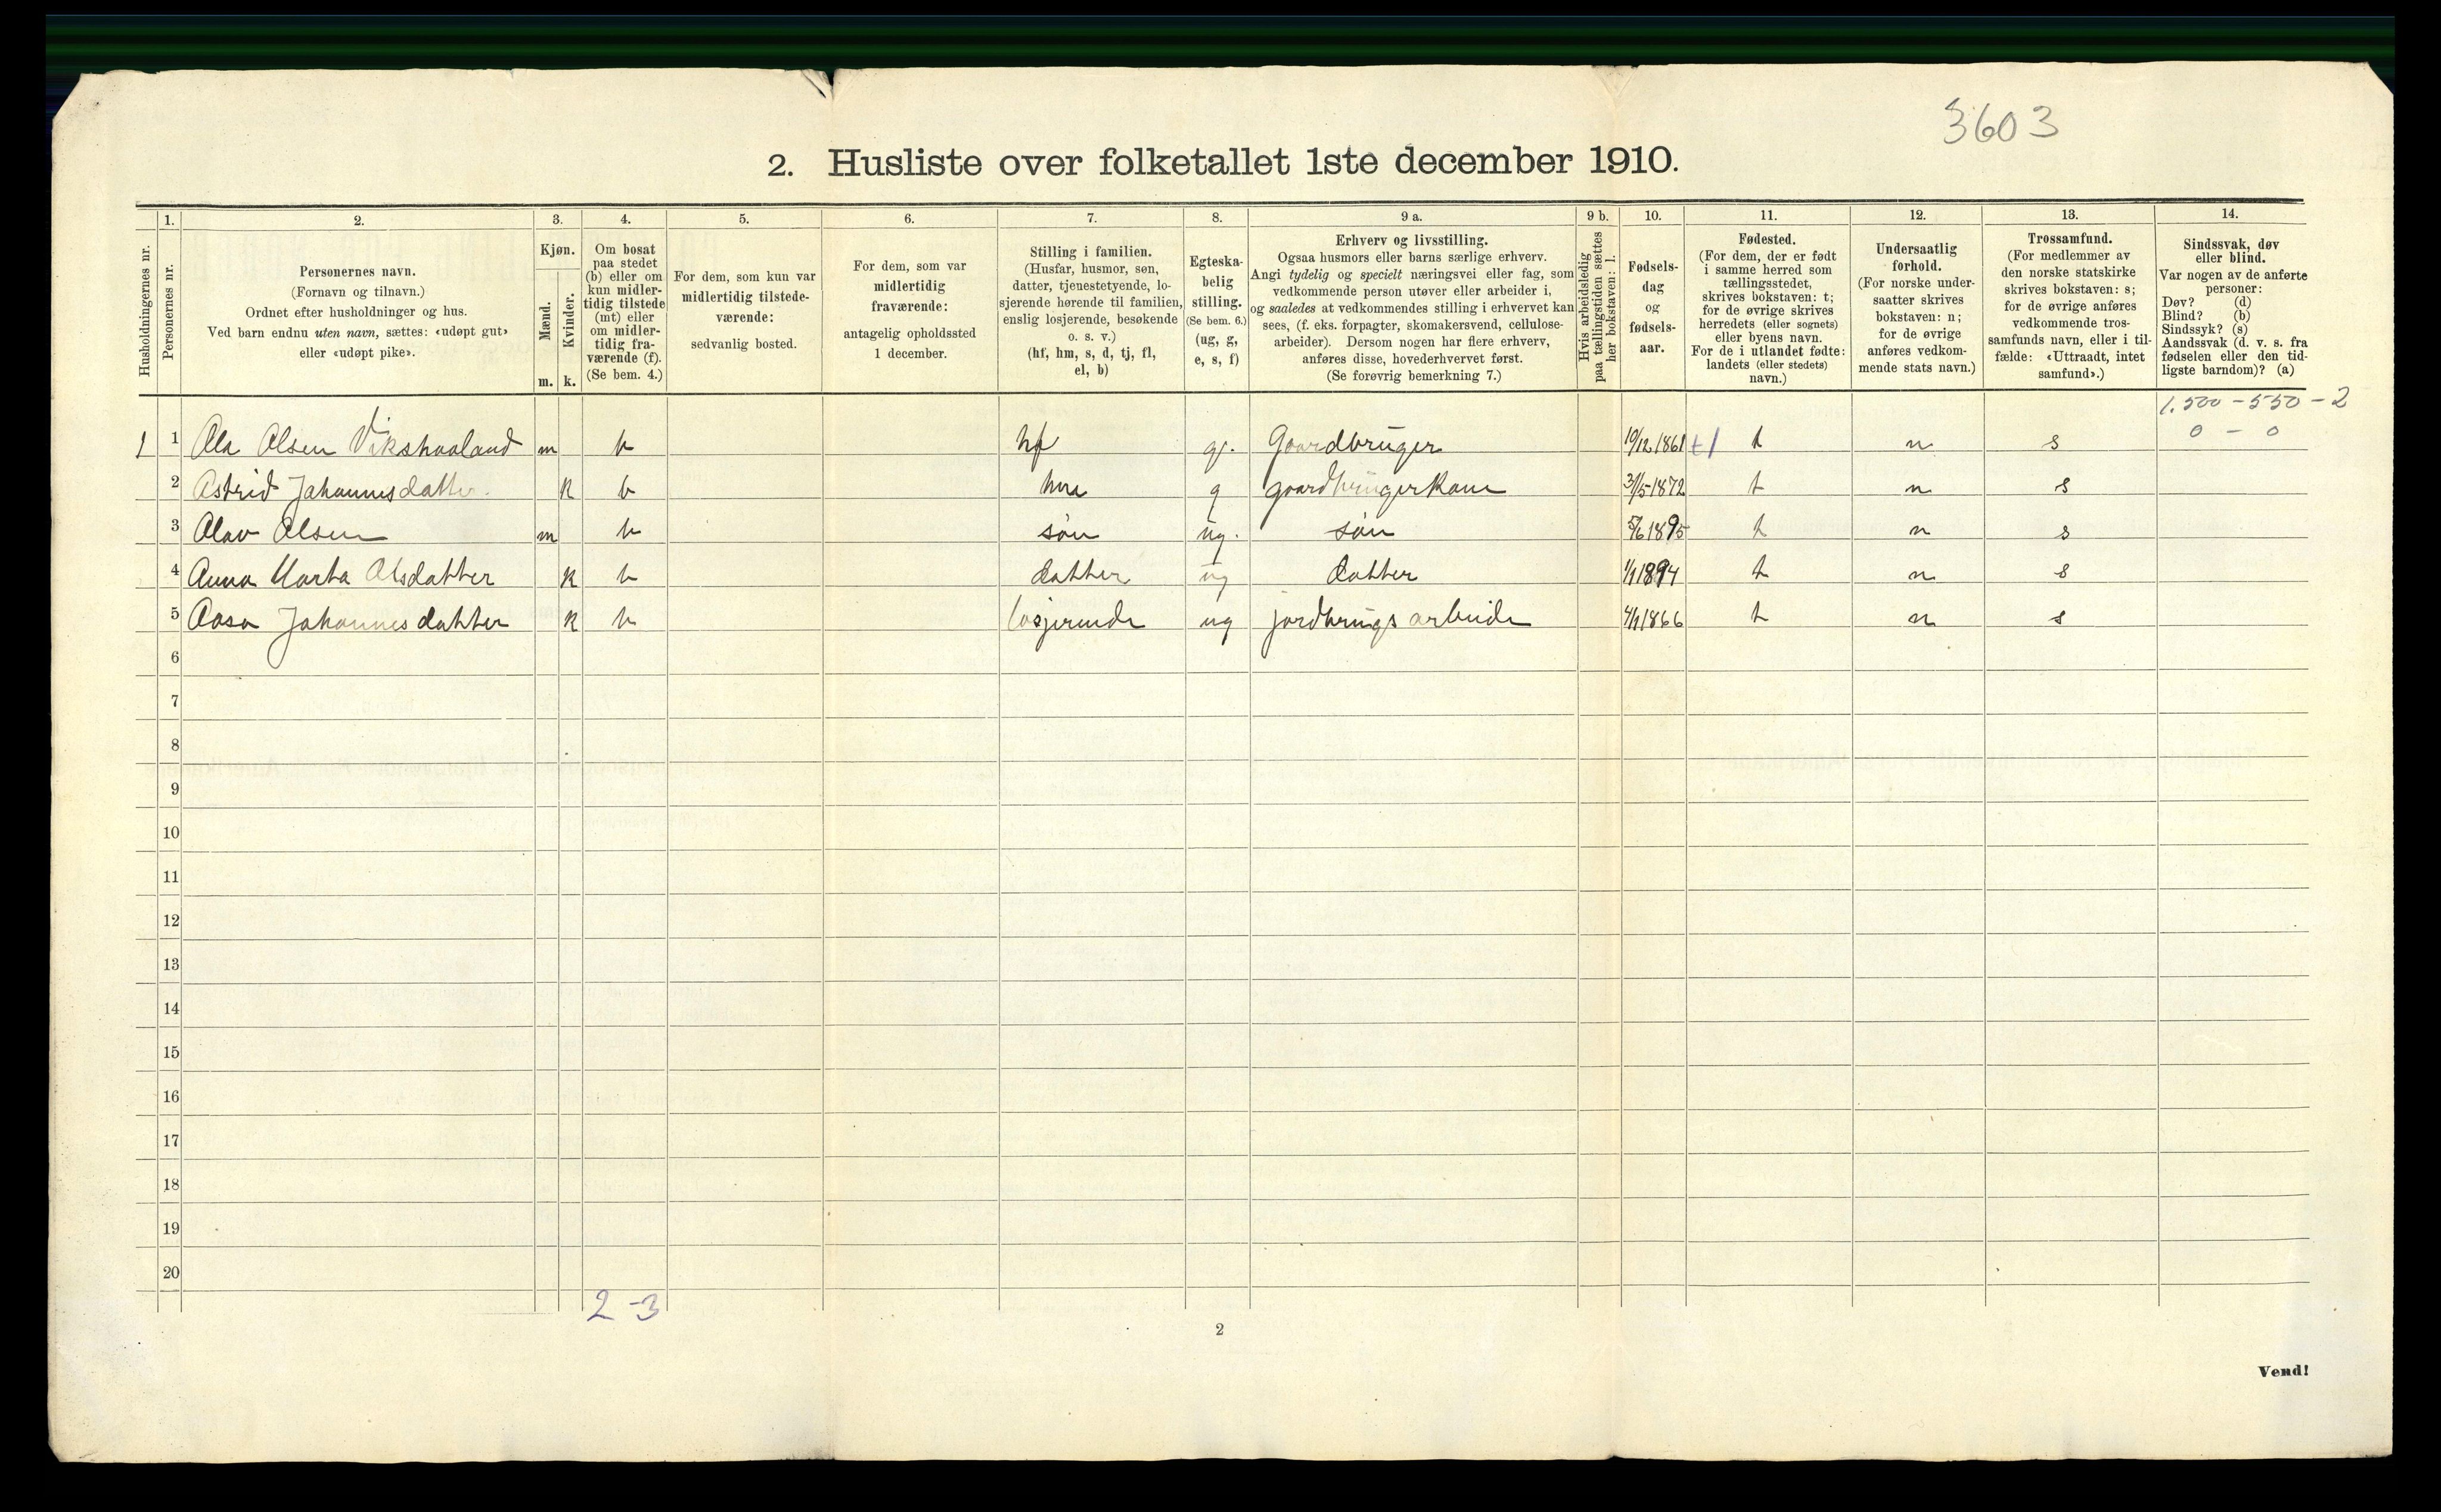 3603
2. Husliste over folketallet 1ste december 1910.
Husholdningernes nr.
1.
Personernes nr.
2.
Personernes navn.
(Fornavn og tilnavn.)
Ordnet efter husholdninger og hus.
Ved barn endnu uten navn, sættes: «udøpt gut»
eller «udøpt pike».
3.
Kjøn.
Mænd.
Kvinder.
m. k.
4.
Om bosat
paa stedet
(b) eller om
kun midler-
tidig tilstede
(mt) eller
om midler-
tidig fra-
værende (f).
(Se bem. 4.)
5.
For dem, som kun var
midlertidig tilstede-
værende:
sedvanlig bosted.
6.
For dem, som var
midlertidig
fraværende:
antagelig opholdssted
1 december.
7.
Stilling i familien.
(Husfar, husmor, søn,
datter, tjenestetyende, lo-
sjerende hørende til familien,
enslig losjerende, besøkende
o. s. v.)
(hf, hm, s, d, tj, fl,
el, b)
8.
Egteska-
belig
stilling.
(Se bem. 6.)
(ug, g,
e, s, f)
9 a.
Erhverv og livsstilling.
Ogsaa husmors eller barns særlige erhverv.
Angi tydelig og specielt næringsvei eller fag, som
vedkommende person utøver eller arbeider i,
og saaledes at vedkommendes stilling i erhvervet kan
sees, (f. eks. forpagter, skomakersvend, cellulose-
arbeider). Dersom nogen har flere erhverv,
anføres disse, hovederhvervet først.
(Se forøvrig bemerkning 7.)
9 b.
Hvis arbeidsledig
paa tællingstiden sættes
her bokstaven: l.
10.
Fødsels-
dag
og
fødsels-
aar.
11.
Fødested.
(For dem, der er født
i samme herred som
tællingsstedet,
skrives bokstaven: t;
for de øvrige skrives
herredets (eller sognets)
eller byens navn.
For de i utlandet fødte:
landets (eller stedets)
navn.)
12.
Undersaatlig
forhold.
(For norske under-
saatter skrives
bokstaven: n;
for de øvrige
anføres vedkom-
mende stats navn.)
13.
Trossamfund.
(For medlemmer av
den norske statskirke
skrives bokstaven: s;
for de øvrige anføres
vedkommende tros-
samfunds navn, eller i til-
fælde: «Uttraadt, intet
samfund».)
14.
Sindssvak, døv
eller blind.
Var nogen av de anførte
personer:
Døv? (d)
Blind? (b)
Sindssyk? (s)
Aandssvak (d. v. s. fra
fødselen eller den tid-
ligste barndom)? (a)
1.500 - 550 - 2
0 - 0
1 1 Ola Olsen Vikshaaland m b hf g. Gaardbruger 19/12 1861 t1 t n s
2 Astrid Johannesdatter k b hm g gaardbrugerkone 31/5 1872 t n s
3 Olav Olsen m b søn ug. søn 5/6 1895 t n s
4 Anna Marta Olsdatter k b datter ug datter 1/1 1894 t n s
5 Aasa Johannesdatter k b losjerende ug jordbrugs arbeide 4/1 1866 t n s
6
7
8
9
10
11
12
13
14
15
16
17
18
19
20
2 - 3
2
Vend!